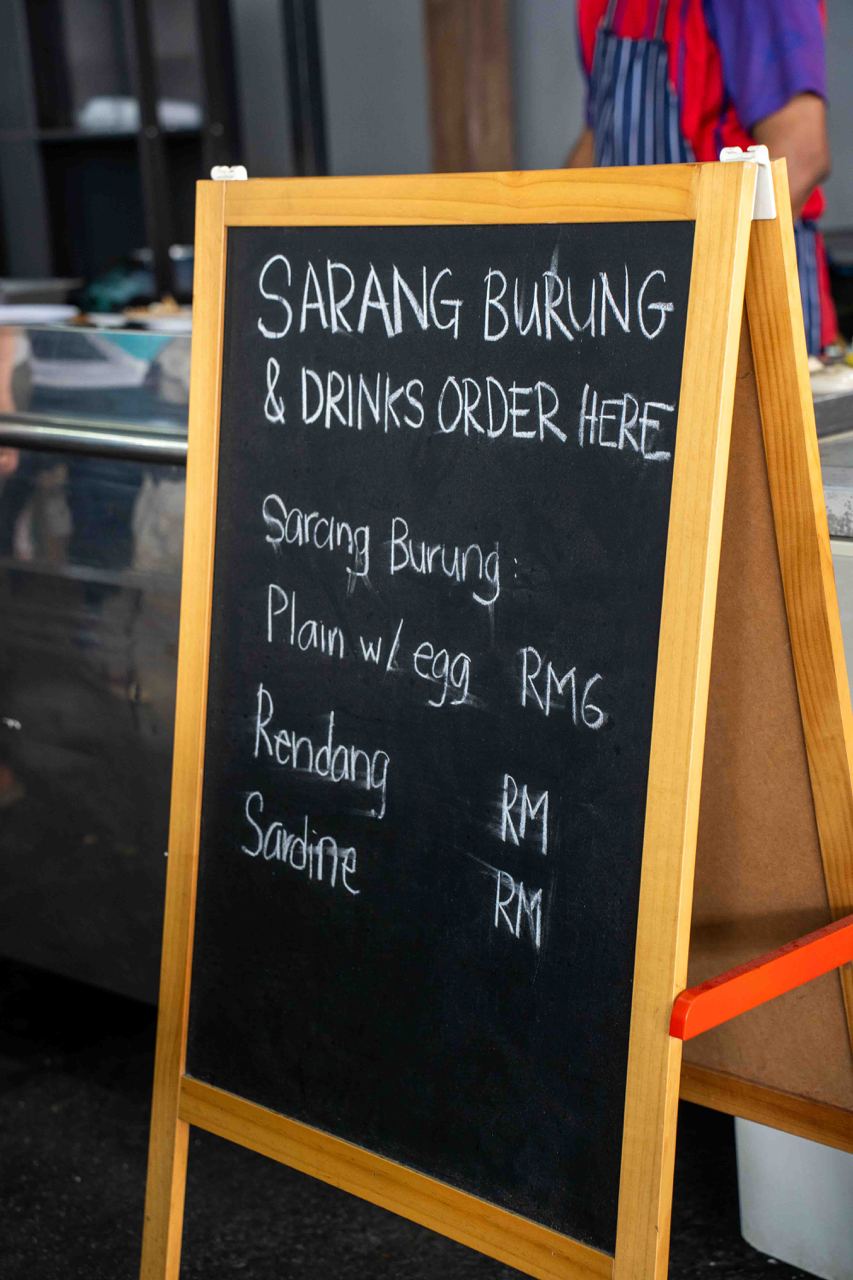 SARANG BURUNG
& DRINKS ORDER HERE
Sarang Burung :
Plain w/ egg RM6
Rendang RM
Sardine RM